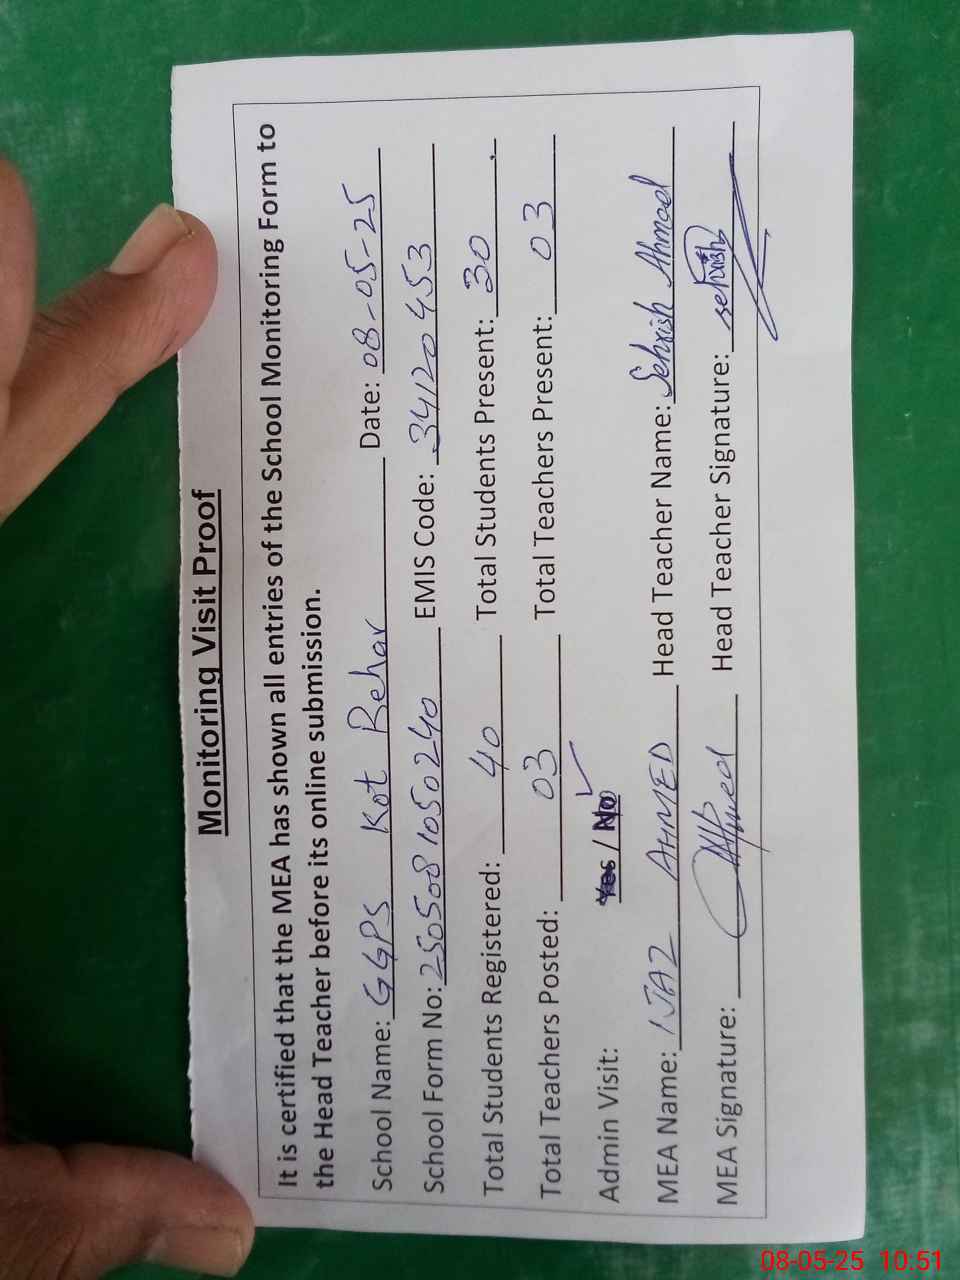 Monitoring Visit Proof
It is certified that the MEA has shown all entries of the School Monitoring Form to
the Head Teacher before its online submission.
School Name: GGPS Kot Rehar Date: 08-05-25
School Form No: 2505081050240 EMIS Code: 34120453
Total Students Registered: 40 Total Students Present: 30
Total Teachers Posted: 03 Total Teachers Present: 03
Admin Visit: Yes / No ✓
MEA Name: IJAZ AHMED Head Teacher Name: Sehrish Ahmad
MEA Signature: Ahmed Head Teacher Signature: sehrish
08-05-25 10:51